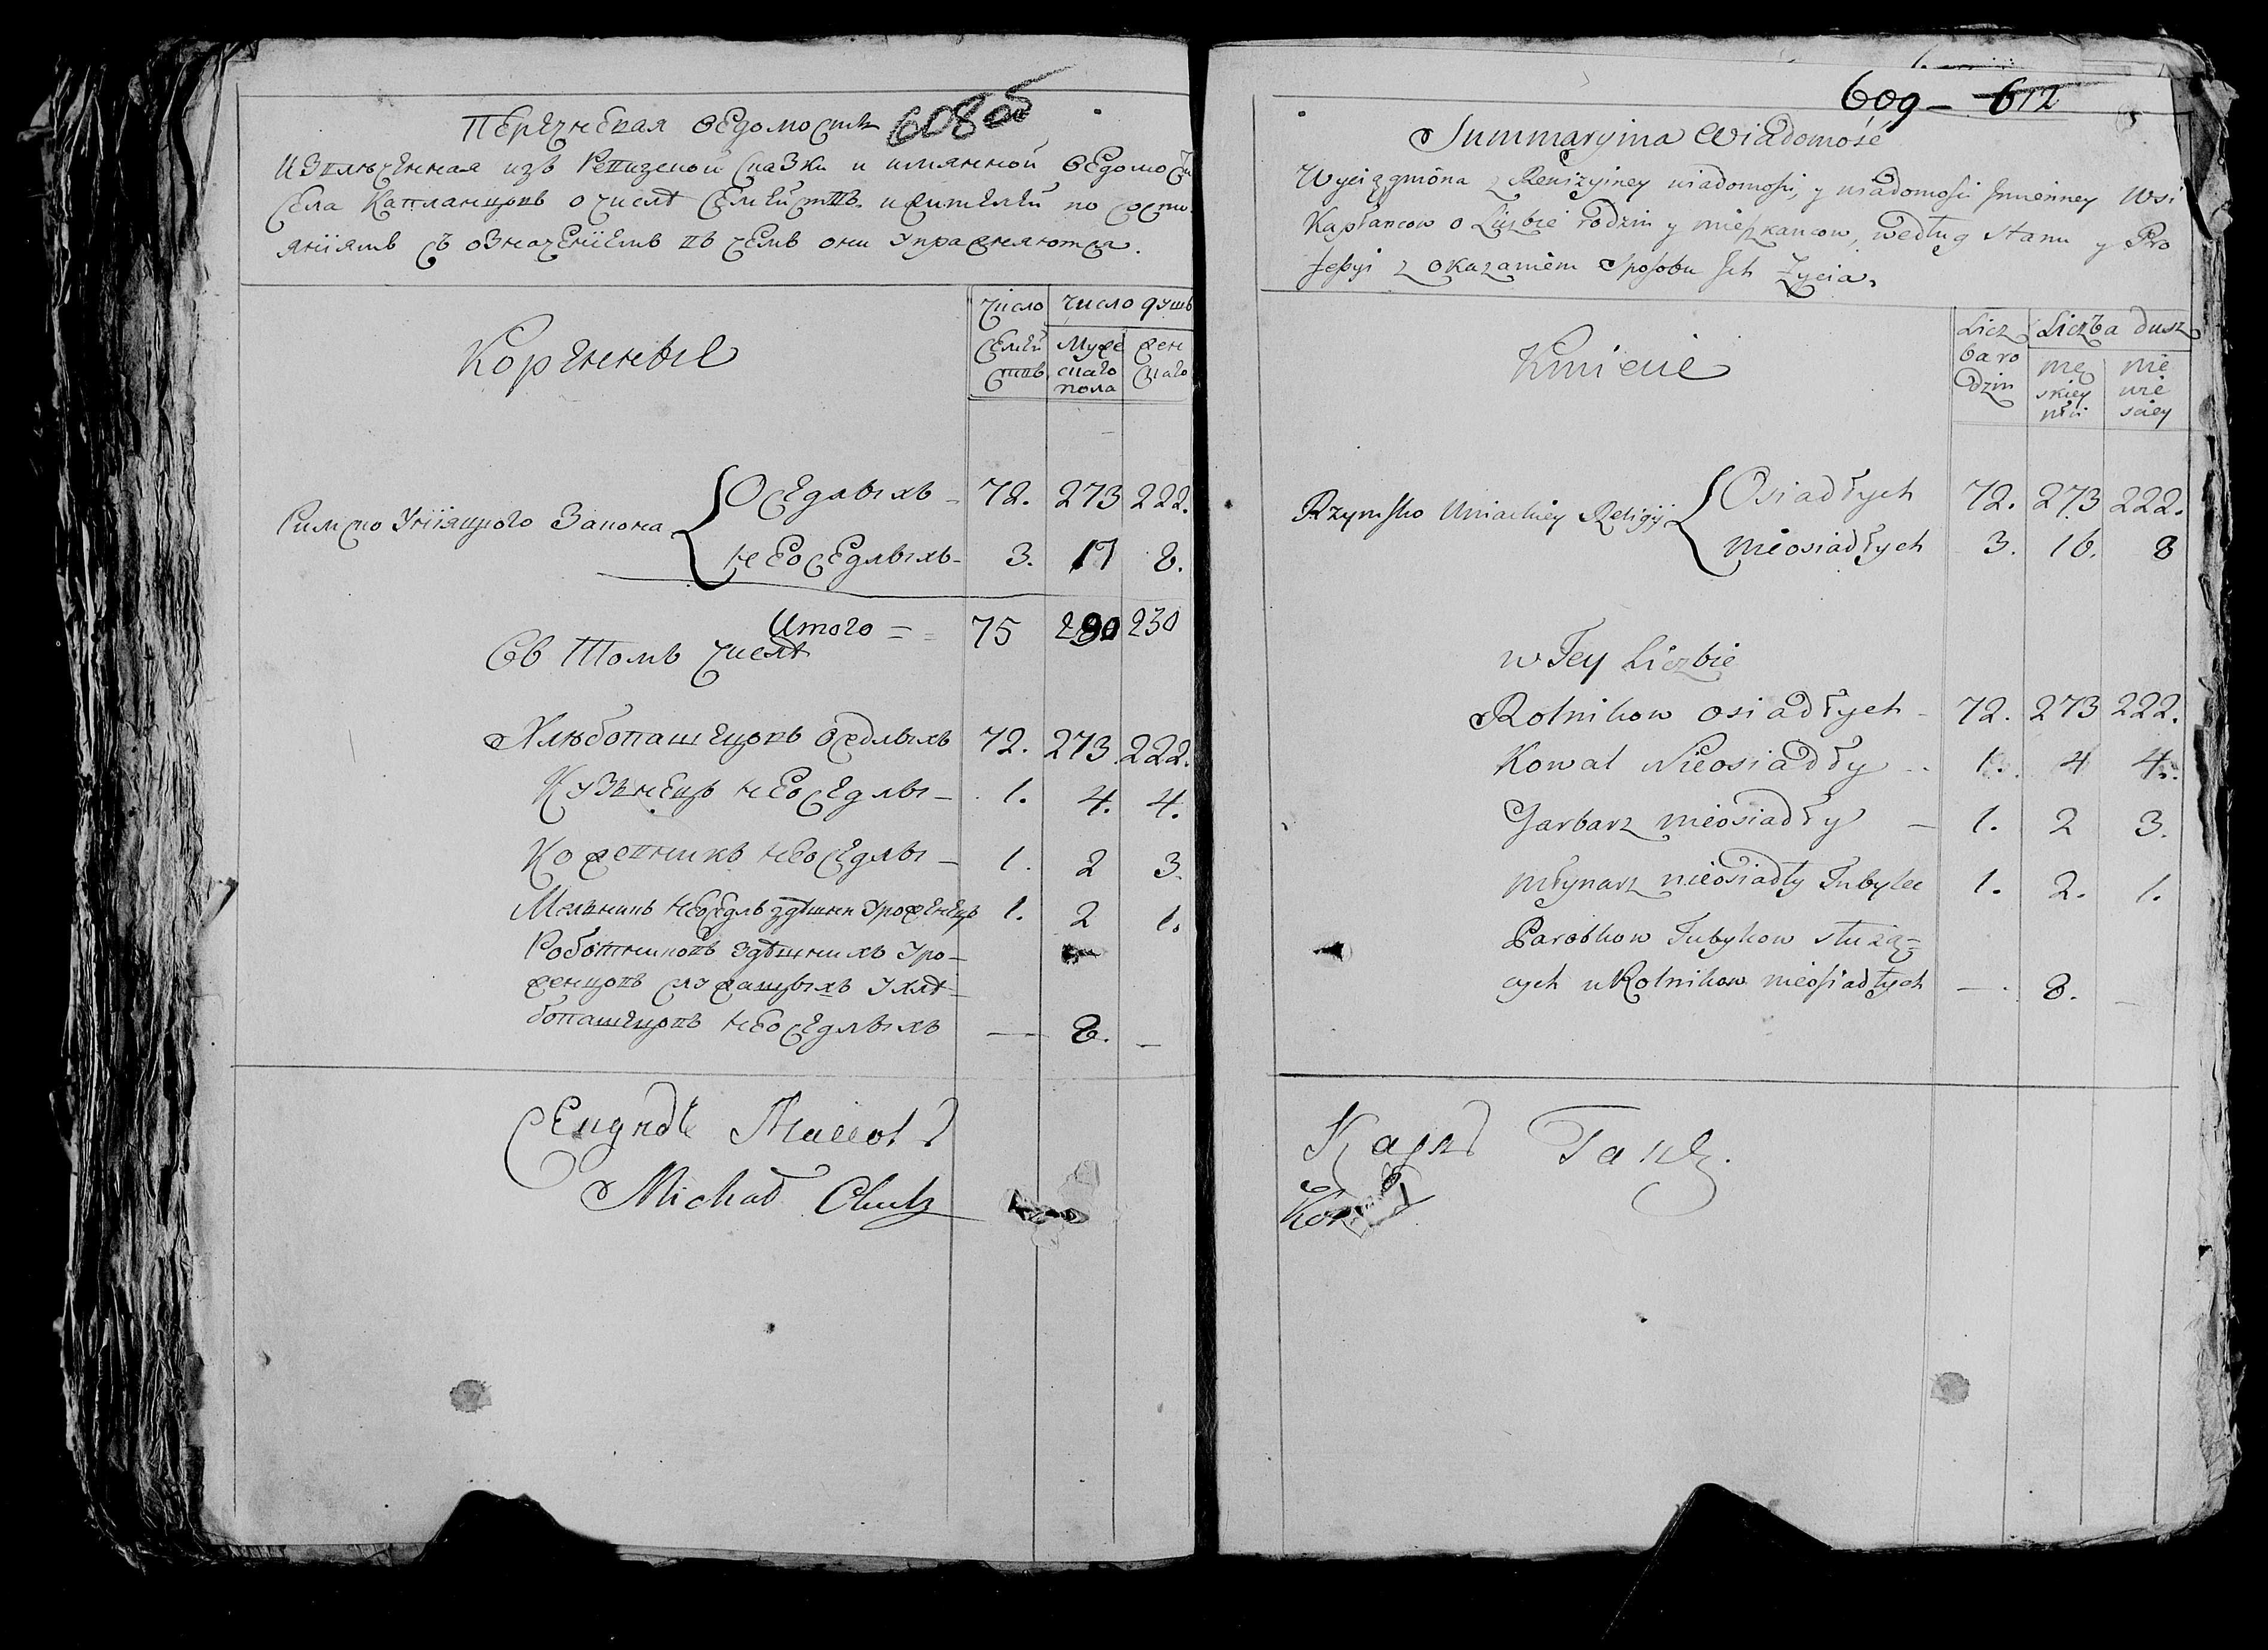 608 об
Перечневая ведомость
Извлеченная изъ Ревизской Сказки и имянной ведомости
Села Капланцовъ о числѣ Семействъ и жителей по состо
янiямъ съ означенiемъ въ чемъ они упражняются.
Коренные
Число Семействъ
число душъ
Мужескаго пола
женскаго
Римско Унiяцкого Закона
Оседлыхъ 72. 273 222.
неоседлыхъ 3. 17 8.
Итого 75 290 230
Въ Томъ числѣ
Хлѣбопашецовъ оседлыхъ 72. 273. 222.
Кузнецъ неоседлы 1. 4. 4.
Кожевникъ неоседлы 1. 2 3.
Мельникъ неоседлъ здѣшни уроженецъ 1. 2 1.
Роботниковъ здѣшнихъ уро-
женцовъ служащыхъ у хлѣ-
бопашецовъ неоседлыхъ — 8. —
Michał
609 – 612
Summaryina Wiadomość
Wyciągniona z Rewizyiney wiadomości, y wiadomości Imienney Wsi
Kapłancow o Liczbie rodzin y mieszkancow, według stanu y Pro
fessyi z okazaniem sposobu Ich Życia.
Kmiecie
Liczba rodzin
Liczba dusz
męskiey płci
niewiesciey
Rzymsko Uniackiey Religji
Osiadłych 72. 273 222.
nieosiadłych 3. 16. 8
w Tey Liczbie
Rolnikow osiadłych 72. 273 222.
Kowal Nieosiadły 1. 4 4.
Garbarz nieosiadły — 1. 2 3.
młynarz nieosiadły Tubylec 1. 2. 1.
Parobkow Tubylcow służą=
cych u Rolnikow nieosiadłych — 8. —